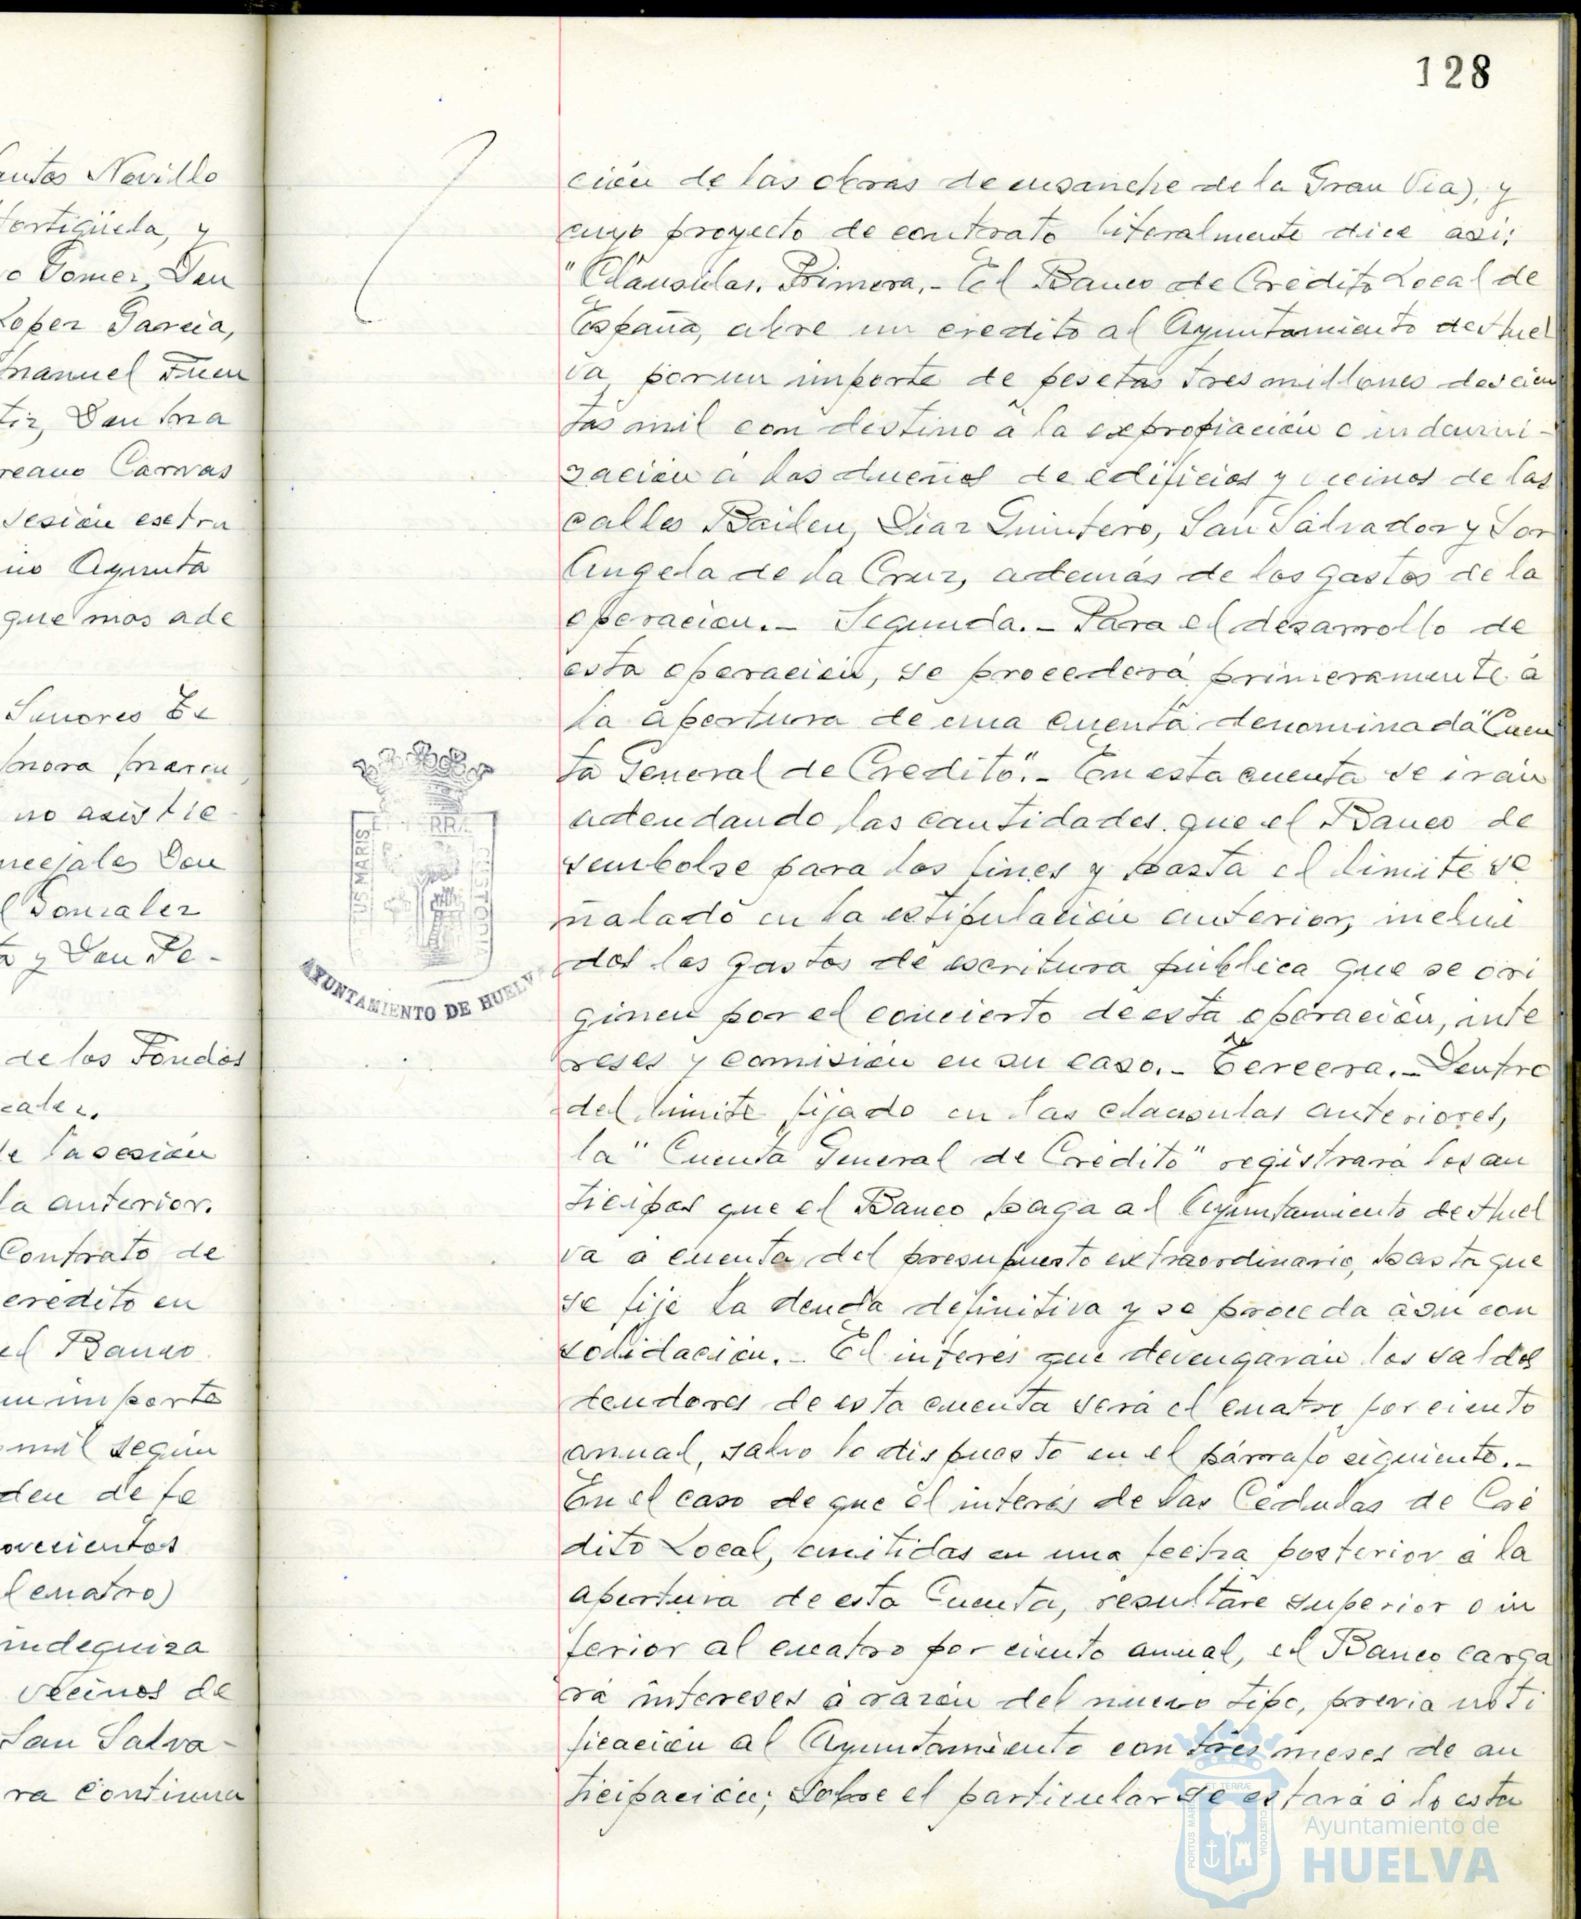 128
antos Novillo
Hortigüela, y
o Gomez, Don
Lopez García,
Manuel Fuen
tiz, Don Ma
reano Carvas
sesión extra
mo Ayunta
que mas ade
Señores Te
Mora Marin,
no asistie
ncejales Don
l Gonzalez
ta y Don Pe-
de los Fondos
cales.
de la sesión
la anterior.
Contrato de
credito en
el Banco
un importe
mil según
den de fe
ovecientos
l cuatro)
indegniza
vecinos de
San Salva-
ra continua
ción de las obras de ensanche de la Gran Via), y
cuyo proyecto de contrato literalmente dice asi:
"Clausulas. Primera.- El Banco de Crédito Local de
España, abre un credito al Ayuntamiento de Huel
va, por un importe de pesetas tres millones doscien
tas mil con destino á la expropiación e indemni-
zación á los dueños de edificios y vecinos de las
calles Bailen, Diaz Quintero, San Salvador y Sor
Angela de la Cruz, además de los gastos de la
operacion.- Segunda.- Para el desarrollo de
esta operación, se procederá primeramente á
la apertura de una cuenta denominada "Cuen
ta General de Credito".- En esta cuenta se irán
adeudando las cantidades que el Banco de
sembolse para los fines y hasta el limite se
ñalado en la estipulación anterior, inclui
dos los gastos de escritura pública que se ori
ginen por el concierto de esta operación, inte
reses y comisión en su caso.- Tercera.- Dentro
del limite fijado en las clausulas anteriores,
la "Cuenta General de Crédito" registrará los an
ticipos que el Banco haga al Ayuntamiento de Huel
va á cuenta del presupuesto extraordinario, hasta que
se fije la deuda definitiva y se proceda á su con
solidación.- El interés que devengarán los saldos
deudores de esta cuenta será el cuatro por ciento
anual, salvo lo dispuesto en el párrafo siguiente.-
En el caso de que el interés de las Cédulas de Cré
dito Local, emitidas en una fecha posterior á la
apertura de esta Cuenta, resultare superior o in
ferior al cuatro por ciento anual, el Banco carga
rá intereses á razón del nuevo tipo, previa noti
ficación al Ayuntamiento con tres meses de an
ticipación; sobre el particular se estará á lo esta
AYUNTAMIENTO DE HUELVA
Ayuntamiento de
HUELVA